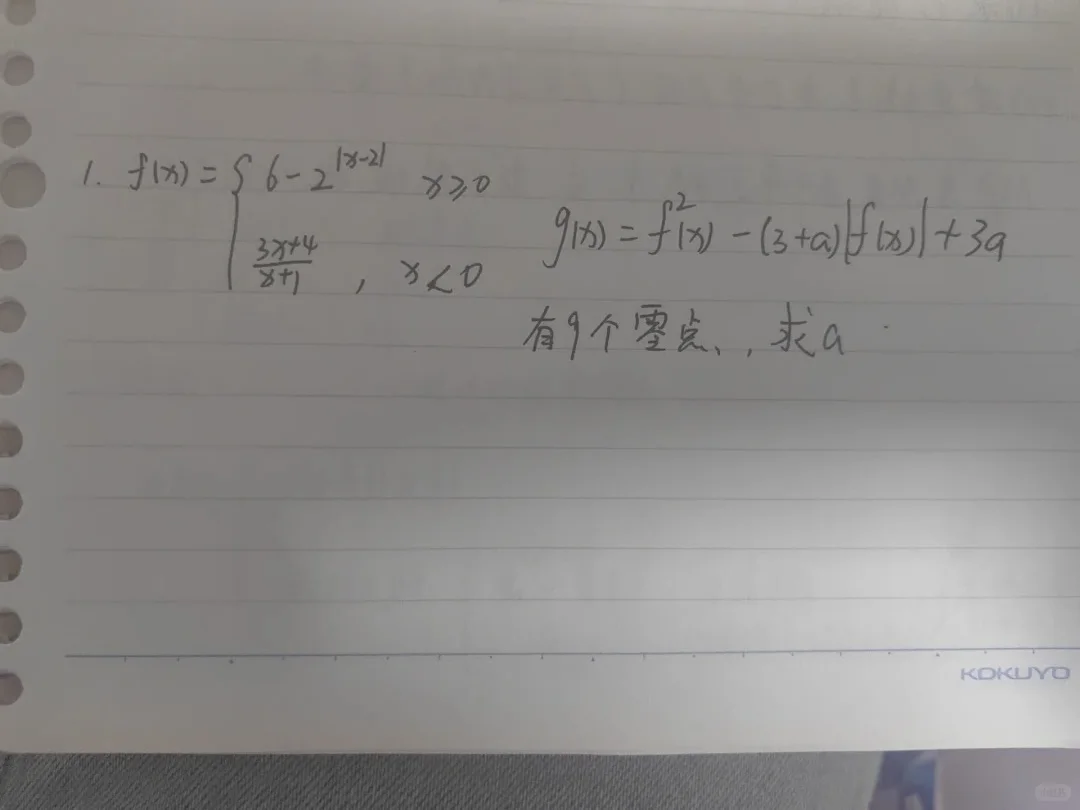 1. f(x) = { 6 - 2^{|x-2|} x≥0
3x+4/x+1 , x<0
g(x) = f²(x) - (3+a)|f(x)| + 3a
有9个零点, 求a
KOKUYO